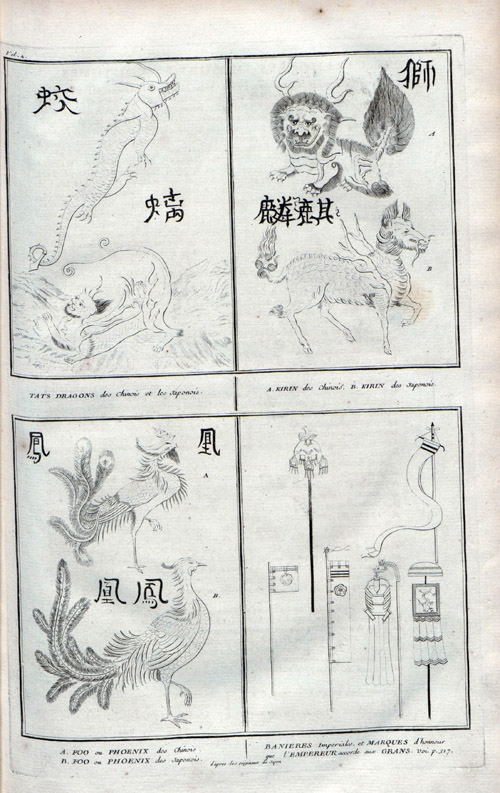 Vol. 2.
蛟
螭
獅
A
麟麒
B
TATS DRAGONS des Chinois et les Japonois.
A. KIRIN des Chinois. B. KIRIN des Japonois.
鳳
凰
A
凰鳳
B.
A. FOO ou PHOENIX des Chinois
B. FOO ou PHOENIX des Japonois.
BANIERES Imperiales, et MARQUES d'honneur
que l'EMPEREUR accorde aux GRANS. Voi p. 317.